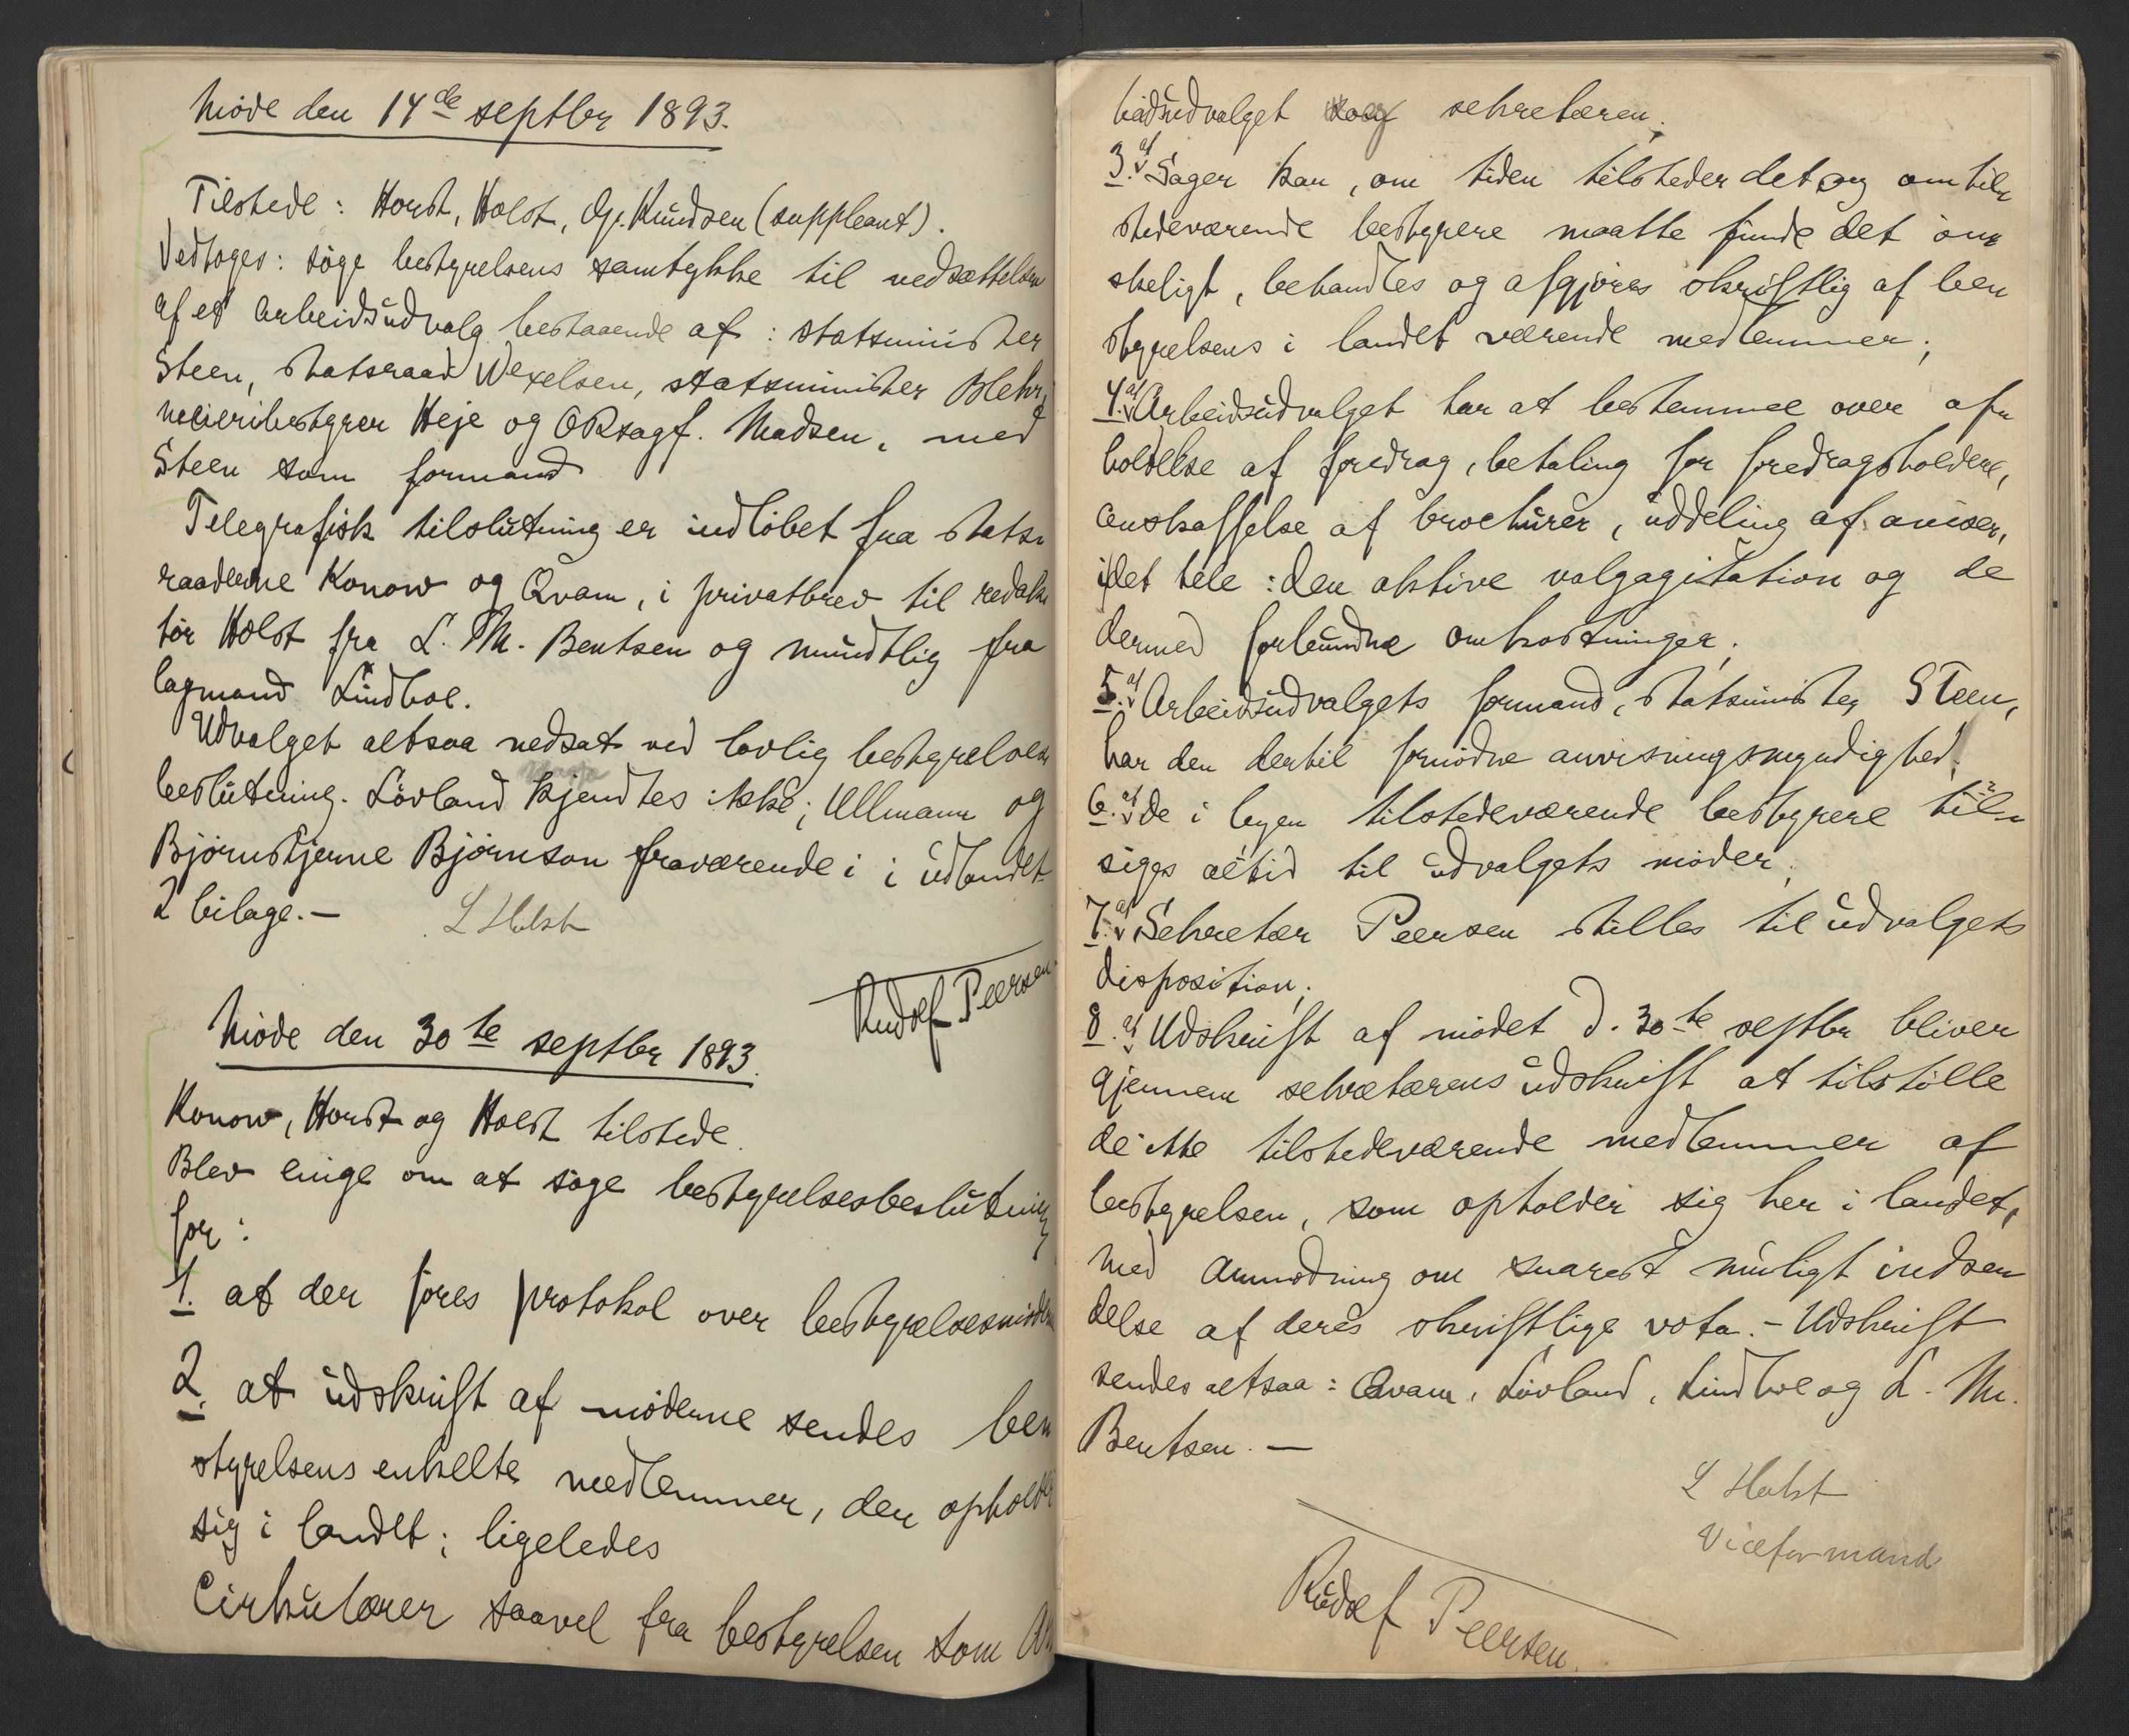 Møde den 14de septbr 1893.
Tilstede: Horst, Holst, Gj. Knudsen (suppleant).
Vedtoges: søge bestyrelsens samtykke til nedsættelsen
af et Arbeidsudvalg bestaaende af: statsminister
Steen, statsraad Wexelsen, statsminister Blehr,
meieribestyrer Heje og ORsagf. Madsen, med
Steen som formand
Telegrafisk tilslutning er indløbet fra stats-
raaderne Konow og Qvam, i privatbrev til redak-
tør Holst fra L. M. Bentsen og mundtlig fra
lagmand Lindboe.
Udvalget altsaa nedsat ved lovlig bestyrelses-
beslutning. Løvland kjendtes ikke; Ullmann og
Bjørnstjerne Bjørnson fraværende i i udlandet
2 bilage.— L Holst
Rudolf Peersen
Møde den 30te septbr 1893.
Konow, Horst og Holst tilstede.
Blev enige om at søge bestyrelsesbeslutning
for:
1. at der føres protokol over bestyrelsesmøderne
2. at udskrift af møderne sendes be-
styrelsens enkelte medlemmer, der opholder
sig i landet; ligeledes
Cirkulærer saavel fra bestyrelsen som Ar
beidsudvalget sekretæren;
3. at Sager kan, om tiden tilsteder det og om til-
stedeværende bestyrere maatte finde det øn-
skeligt, behandles og afgjøres skriftlig af be-
styrelsens i landet værende medlemmer;
4. at Arbeidsudvalget har at bestemme over af-
holdelse af foredrag, betaling for foredragsholdere,
anskaffelse af brochurer, uddeling af aviser,
i det hele: den aktive valgagitation og de
dermed forbundne omkostninger;
5. at Arbeidsudvalgets formand, statsminister Steen,
har den dertil fornødne anvisningsmyndighed;
6. at de i byen tilstedeværende bestyrere til-
siges altid til udvalgets møder;
7. at Sekretær Peersen stilles til udvalgets
disposition;
8. at Udskrift af mødet d. 30te septbr bliver
gjennem sekretærens udskrift at tilstille
de ikke tilstedeværende medlemmer af
bestyrelsen, som opholder sig her i landet,
med anmodning om snarest muligt indsen
delse af deres skriftlige vota.— Udskrift
sendes altsaa: Qvam, Løvland, Lindboe og L. M.
Bentsen.—
L Holst
Viceformand
Rudolf Peersen.